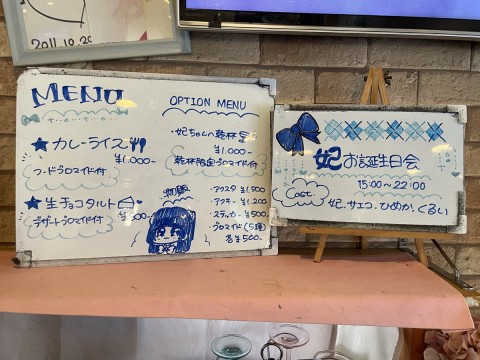 2011.10.20
MENU
★カレーライス
¥1.000-
フードブロマイド付
★生チョコタルト
デザートブロマイド付
¥800-
OPTION MENU
・妃ちゃんへ乾杯
¥1.000-
乾杯限定ブロマイド付
物販
・アクスタ ¥1,500
・アクキー ¥1,200
・ステッカー ¥500
・ブロマイド(5種)
各¥500-
妃お誕生日会
15:00~22:00
Cast
妃.サエコ.ひめか.くるい